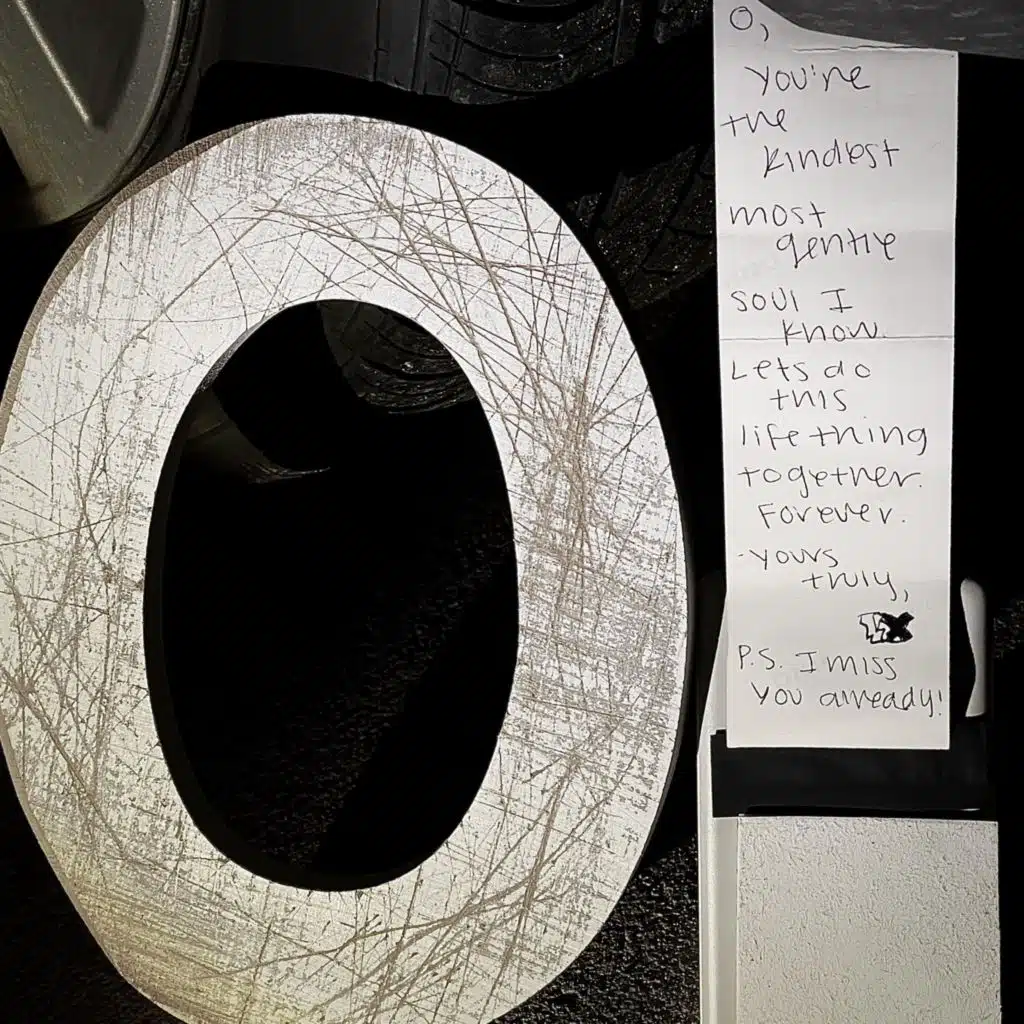 O,
you're
the
kindest
most
gentle
soul I
know.
Lets do
this
life thing
together.
Forever.
-yours
truly,
P.S. I miss
you already!
O